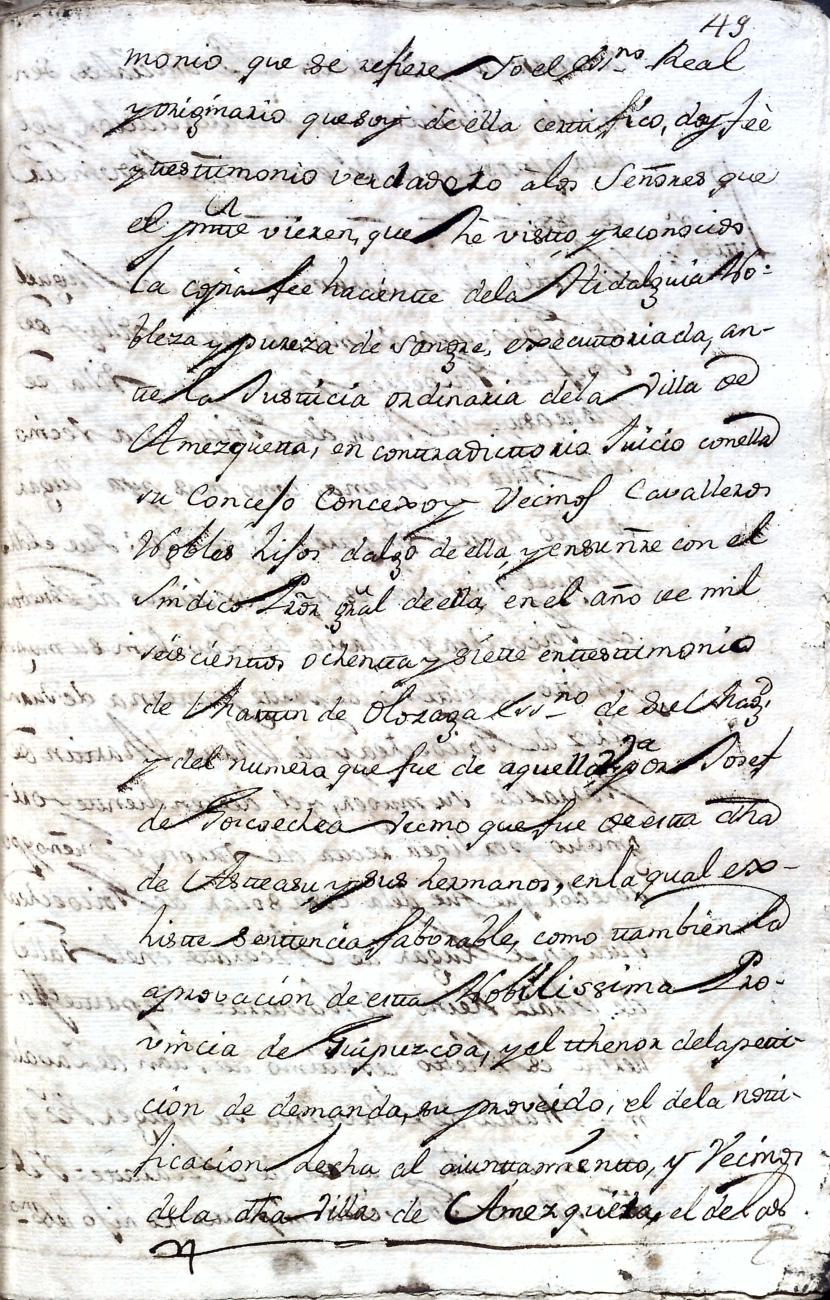 49
monio que se refiere Yo el Ess.no Real
y originario que soy de ella certifico, doy feè
y testimonio verdadero à los Señores que
el pnte vieren, que hè visto y reconocido
la copia fee haciente dela Hidalguia No-
bleza y pureza de Sangre, executoriada, an-
te la Justicia ordinaria dela Villa de
Amezqueta, en contradictorio Juicio con ella
su Concejo Concexo y Vecinos Cavalleros
Nobles hijos dalgo de ella, y en su nre con el
Sindico Pror gral de ella, en el año de mil
seiscientos ochenta y siete en testimonio
de Martin de Olozaga Ess.no de Su Magd,
y del numero que fue de aquella por Josef
de Goicoechea Vecino que fue de esta dha
de Asteasu y sus hermanos, en la qual ex-
histe sentencia faborable, como tambien la
aprovacion de esta Nobilissima Pro-
vincia de Guipuzcoa, y el thenor dela peti-
ción de demanda, su proveido, el dela noti-
ficacion hecha al aiuntamiento, y Vecinos
dela dha Villa de Amezqueta, el de los